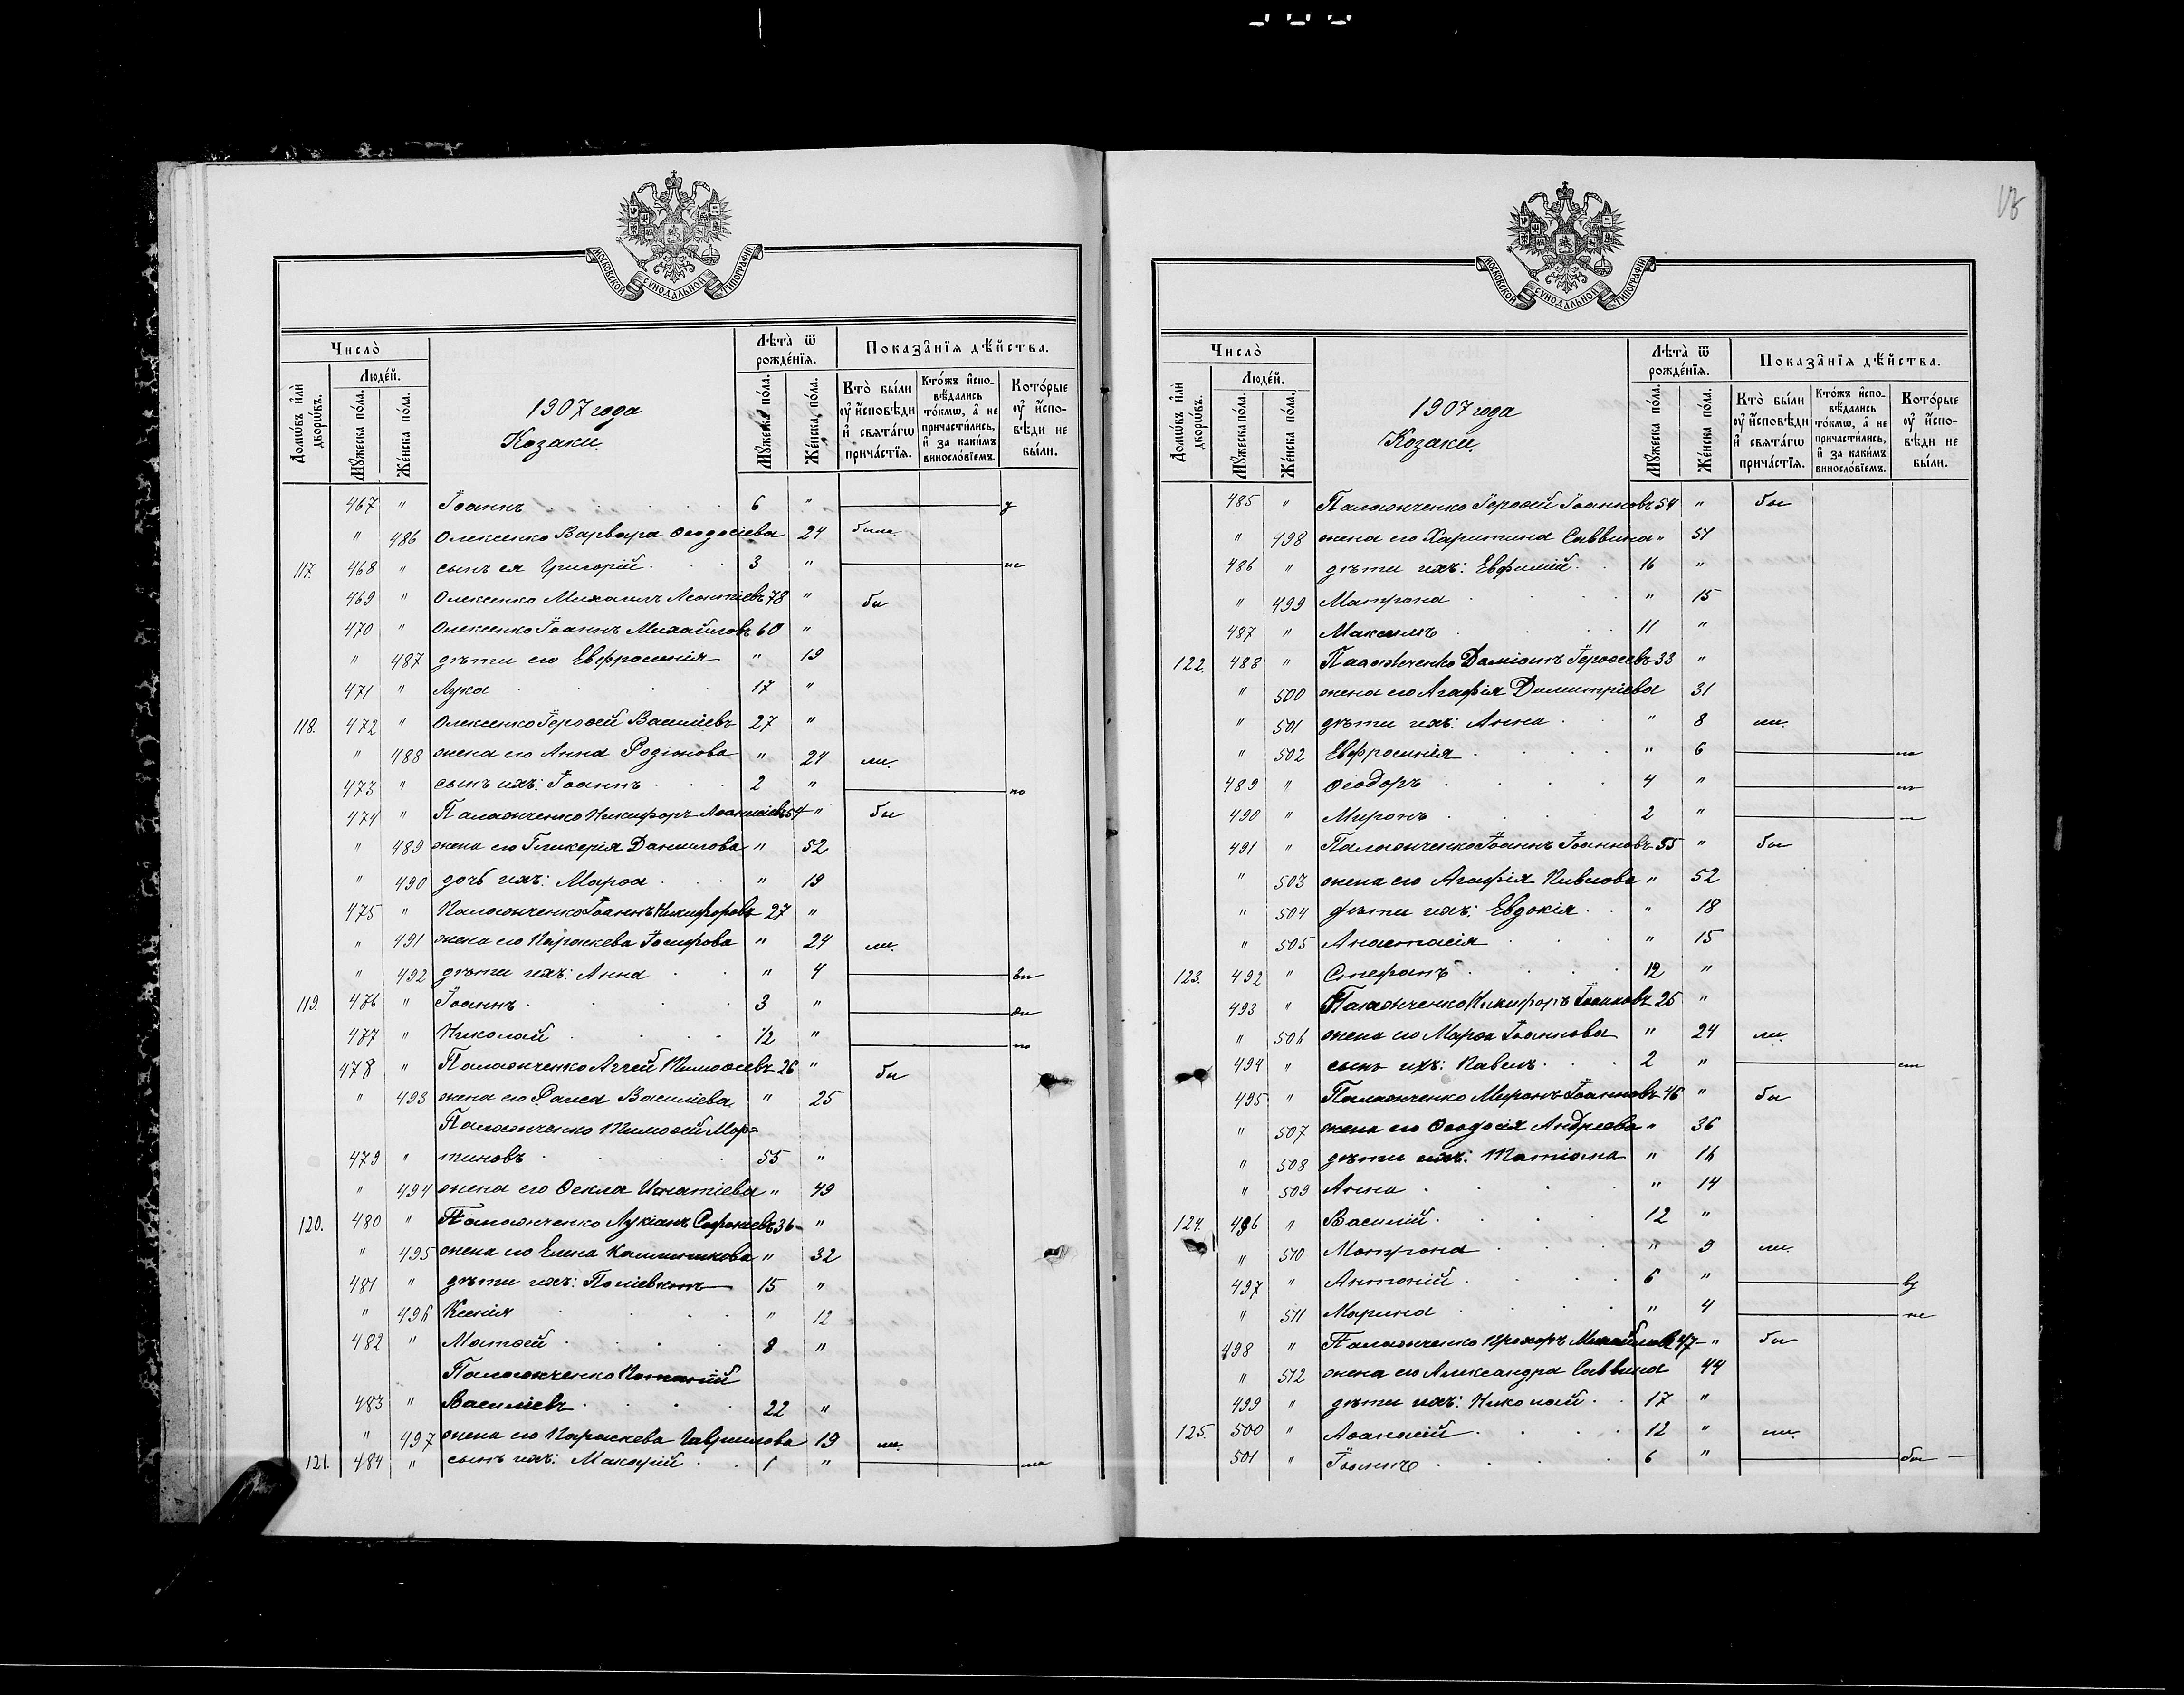 МОСКОВСКОЙ СѴНОДАЛЬНОЙ ТИПОГРАФІИ
Число̀
Люде́й.
Домѡ́въ и҆лѝ дворѡ́въ.
Мꙋ́жеска по́ла.
Же́нска по́ла.
1907 года
Козаки.
Лѣ́та ѿ рожде́нїѧ.
Мꙋ́жеска по́ла.
Же́нска по́ла.
Показа̑нїѧ дѣ́йства.
Кто̀ бы́ли оу҆ и҆́сповѣди и҆ свѧта́гѡ прича́стїѧ.
Кто́жъ и҆спо-вѣ́дались то́кмѡ, а҆ не причасти́лись, и҆ за каки́мъ винослѡ́вїемъ.
Кото́рые оу҆ и҆́спо-вѣди не бы́ли.
467 " Іоаннъ 6 "
" 486 Олексенко Варвара Ѳеодосіева 24 были
117. 468 " сынъ ея Григорій 3 " не
469 " Олексенко Михаилъ Леонтіевъ 78 " бы
470 " Олексенко Іоаннъ Михайловъ 60 "
" 487 дѣти его Евфросинія " 19
471 " Лука 17 "
118. 472 " Олексенко Іероѳей Василіевъ 27 "
" 488 жена его Анна Родіонова " 24 ли.
473 " сынъ ихъ: Іоаннъ 2 " по
474 " Паламонченко Никифоръ Аѳанасіевъ 54 " бы
" 489 жена его Гликерія Даниилова " 52
" 490 дочь ихъ: Марѳа " 19
475 " Іоаннъ Никифоровъ 27 "
" 491 жена его Параскева Іосифова " 24 ли.
" 492 дѣти ихъ: Анна " 4
119. 476 " Іоаннъ 3 "
477 " Николай 1/2 " по
478 " Аггей Тимоѳеевъ 26 " бы
" 493 жена его Раиса Василіева " 25
Тимоѳей Мар=
479 " тиновъ 55 "
" 494 жена его Ѳекла Игнатіева " 49
120. 480 " Лукіанъ Софоніевъ 36 "
" 495 жена его Елена Каллиникова " 32
481 " дѣти ихъ: Поліевктъ 15 "
" 496 Ксенія " 12
482 " Матѳей 8 "
Потапій
483 " Василіевъ 22 "
" 497 жена его Параскева Гавриилова 19 ли.
121. 484 " сынъ ихъ: Макарій 1 "
МОСКОВСКОЙ СѴНОДАЛЬНОЙ ТИПОГРАФІИ
Число̀
Люде́й.
Домѡ́въ и҆лѝ дворѡ́въ.
Мꙋ́жеска по́ла.
Же́нска по́ла.
1907 года
Козаки.
Лѣ́та ѿ рожде́нїѧ.
Мꙋ́жеска по́ла.
Же́нска по́ла.
Показа̑нїѧ дѣ́йства.
Кто̀ бы́ли оу҆ и҆́сповѣди и҆ свѧта́гѡ прича́стїѧ.
Кто́жъ и҆спо-вѣ́дались то́кмѡ, а҆ не причасти́лись, и҆ за каки́мъ винослѡ́вїемъ.
Кото́рые оу҆ и҆́спо-вѣди не бы́ли.
485 " Іероѳей Іоанновъ 54 " бы
" 498 жена его Харитина Саввина " 51
486 " дѣти ихъ: Евфимій 16 "
" 499 Матрона " 15
487 " Максимъ 11 "
122. 488 " Даміанъ Іероѳеевъ 33 "
" 500 жена его Агафія Димитріева 31
" 501 дѣти ихъ: Анна " 8 ли.
" 502 Евфросинія " 6 по
489 " Ѳеодоръ 4 "
490 " Миронъ 2 "
491 " Іоаннъ Іоанновъ 55 " бы
" 503 жена его Агафія Павлова " 52
" 504 дѣти ихъ: Евдокія " 18
" 505 Анастасія " 15
123. 492 " Стефанъ 12 "
493 " Никифоръ Іоанновъ 25 "
" 506 жена его Марѳа " 24 ли.
494 " сынъ ихъ: Павелъ 2 "
495 " Миронъ Іоанновъ 46 " бы
" 507 жена его Ѳеодосія Андреева " 36
" 508 дѣти ихъ: Татіана " 16
" 509 Анна " 14
124. 496 " Василій 12 "
" 510 Матрона " 9 ли.
497 " Антоній 6 "
" 511 Марина " 4 не
498 " Прохоръ Михайловъ 47 " бы
" 512 жена его Александра Саввина 44
499 " дѣти ихъ: Николай 17 "
125. 500 " Аѳанасій 12 " ли.
501 " Іоаннъ 6 "